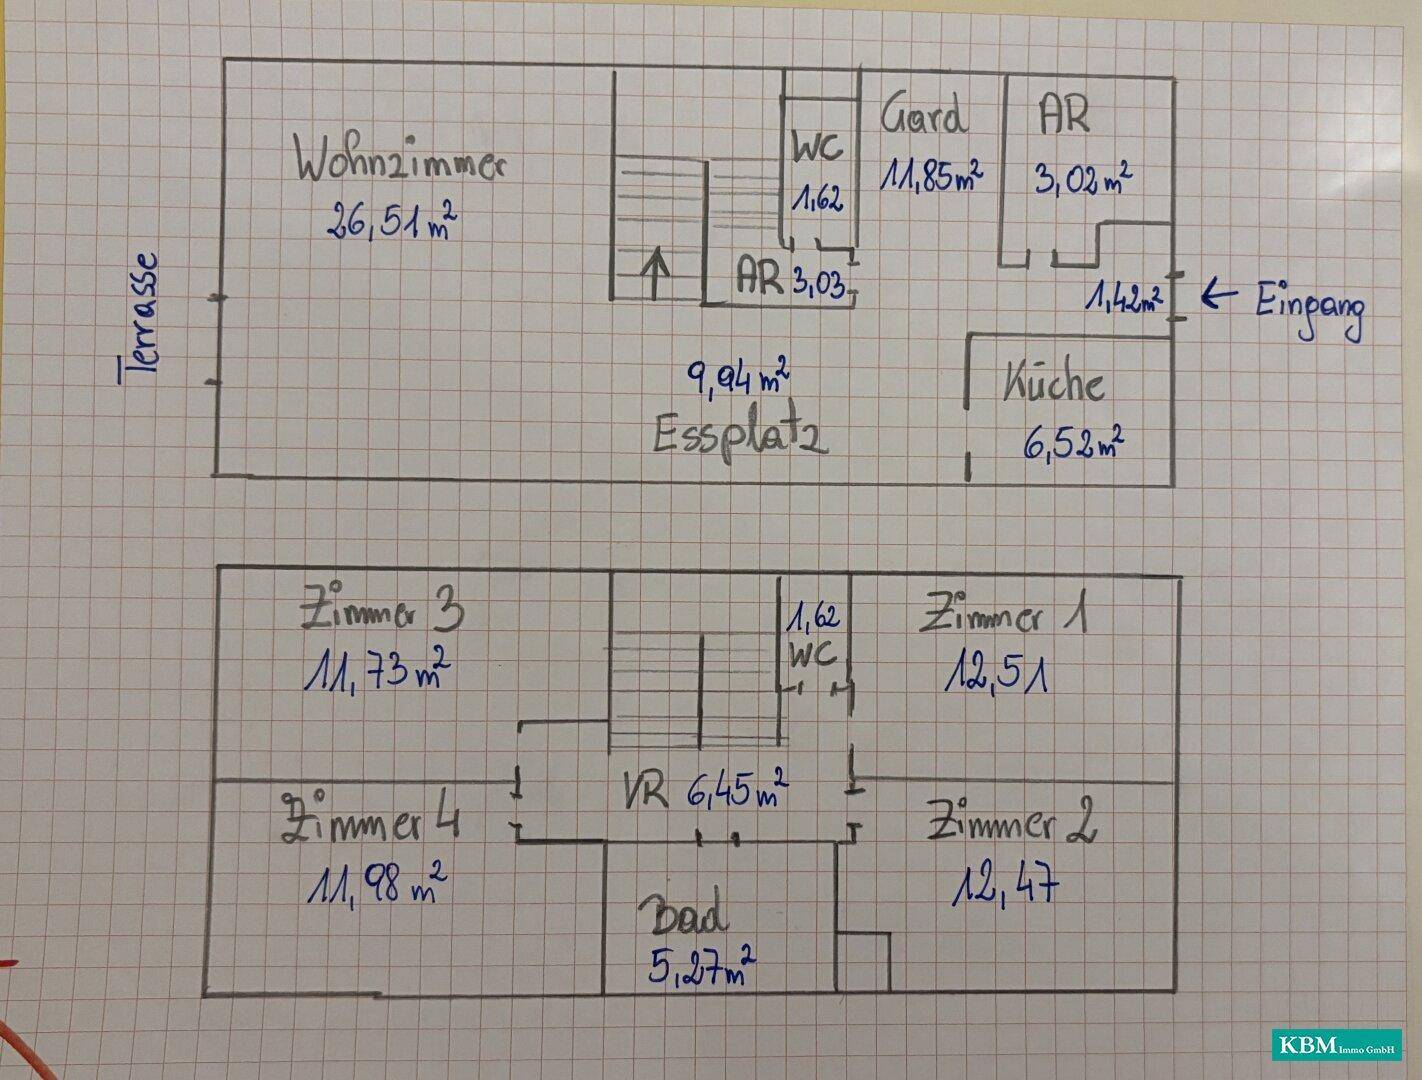 Wohnzimmer
26,51 m²
WC
1,62
Gard
11,85 m²
AR
3,02 m²
AR 3,03
1,42 m²
← Eingang
Terrasse
9,94 m²
Essplatz
Küche
6,52 m²
Zimmer 3
11,73 m²
1,62
WC
Zimmer 1
12,51
VR 6,45 m²
Zimmer 4
11,98 m²
Zimmer 2
12,47
Bad
5,27 m²
KBM Immo GmbH